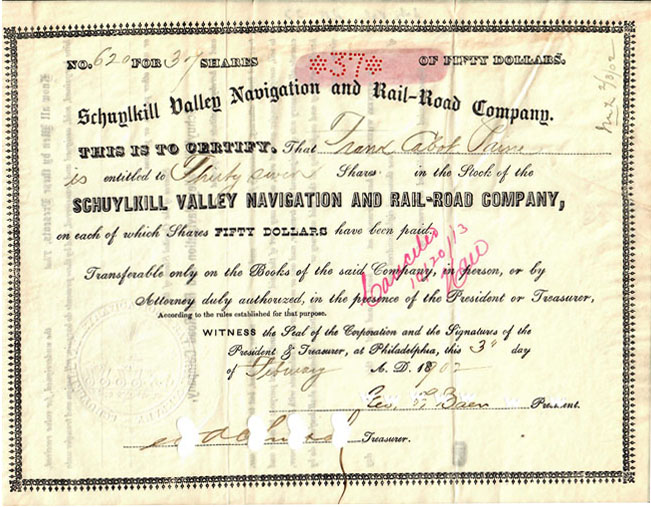 NO. 620 FOR 37 SHARES *37* OF FIFTY DOLLARS.
Schuylkill Valley Navigation and Rail-Road Company.
THIS IS TO CERTIFY. That Frank Cabot Paine
is entitled to Thirty seven Shares in the Stock of the
SCHUYLKILL VALLEY NAVIGATION AND RAIL-ROAD COMPANY,
on each of which Shares FIFTY DOLLARS have been paid.
Cancelled
10/20/13
Transferable only on the Books of the said Company, in person, or by
Attorney duly authorized, in the presence of the President or Treasurer,
According to the rules established for that purpose.
WITNESS the Seal of the Corporation and the Signatures of the
President & Treasurer, at Philadelphia, this 3d day
of February A. D. 1902
Geo. F. Baer President.
Treasurer.